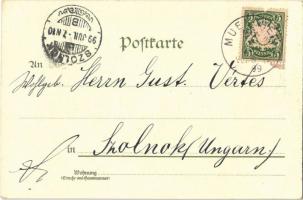 Postkarte
SZOLNOK
99 JUL. 7. N. 10
MÜ
99
An Wohlgeb. Herrn Gust. Vértes
in Szolnok (Ungarn)
Wohnung
(Strasse und Hausnummer)